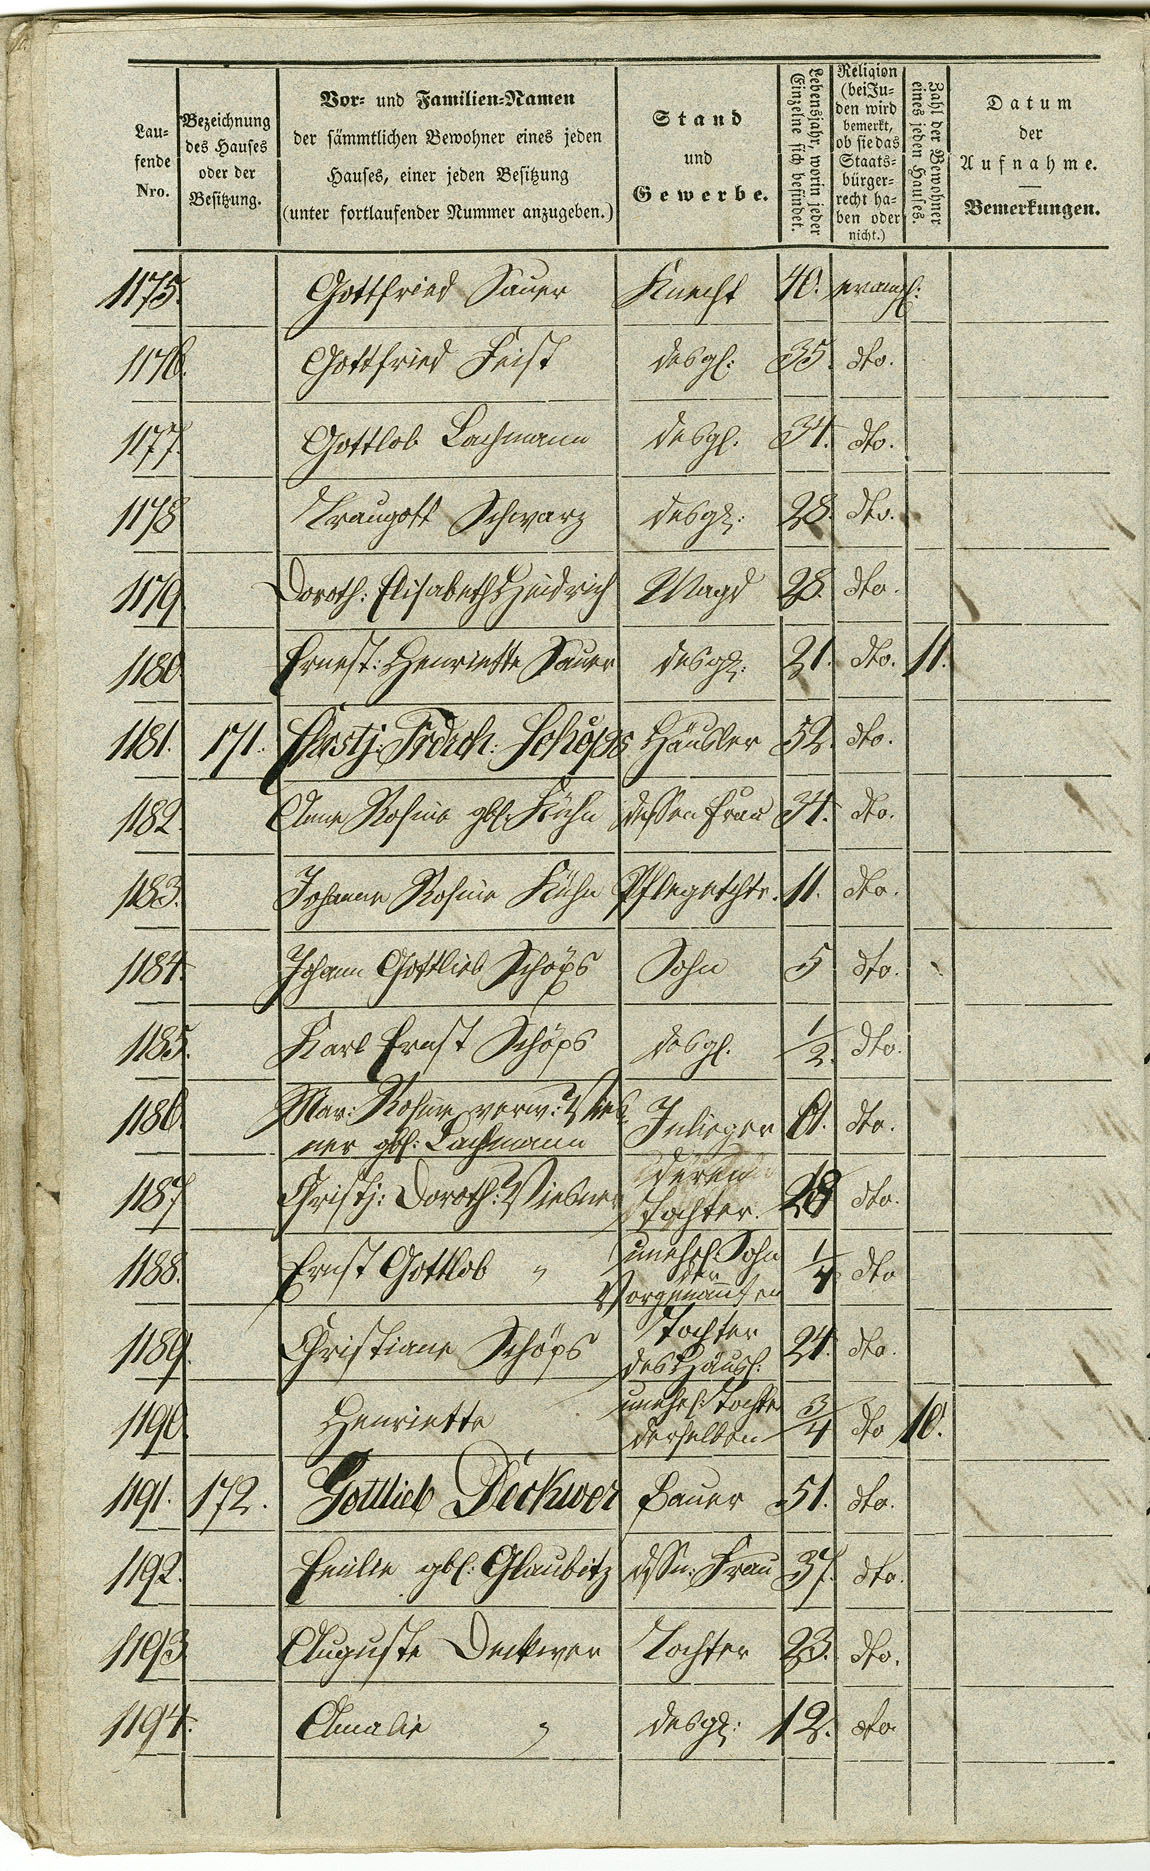 Laufende Nro.
Bezeichnung des Hauses oder der Besitzung.
Vor- und Familien-Namen der sämmtlichen Bewohner eines jeden Hauses, einer jeden Besitzung (unter fortlaufender Nummer anzugeben.)
Stand und Gewerbe.
Lebensjahr, worin jeder Einzelne sich befindet.
Religion (bei Juden wird bemerkt, ob sie das Staatsbürgerrecht haben oder nicht.)
Zahl der Bewohner eines jeden Hauses.
Datum der Aufnahme. — Bemerkungen.
1175. Gottfried Sauer Knecht 40. evangl:
1176. Gottfried Feist desgl: 35. dto.
1177. Gottlob Lachmann desgl. 34. dto.
1178 Traugott Schwarz desgl: 28. dto.
1179. Doroth: Elisabeth Heidrich Magd 28. dto.
1180. Ernest: Henriette Sauer desgl: 21. dto. 11.
1181. 171. Christj: Frdrch: Schöps Häusler 52. dto.
1182. Anne Rosine gbl: Kühn dessen Frau 34. dto.
1183. Johanne Rosine Kühn Pflegetchtr. 11. dto.
1184. Johann Gottlieb Schöps Sohn 5 dto.
1185. Karl Ernst Schöps desgl. 1/2. dto.
1186. Mar: Rosine verw: Wies
ner gbl: Lachmann Inlieger 61. dto.
1187 Christj: Doroth: Wiesner deren
Tochter. 28 dto.
1188. Ernst Gottlob " unehel: Sohn
der
Vorgenannten 1/4 dto
1189. Christiane Schöps Tochter
des Häusl: 24. dto.
1190. Henriette unehel: Tochter
derselben 3/4 dto 10.
1191. 172. Gottlieb Deckwer Bauer 51. dto.
1192. Emilie gbl: Glaubitz dssn: Frau 37. dto.
1193 Auguste Deckwer Tochter 23. dto.
1194. Amalie " desgl: 12. dto